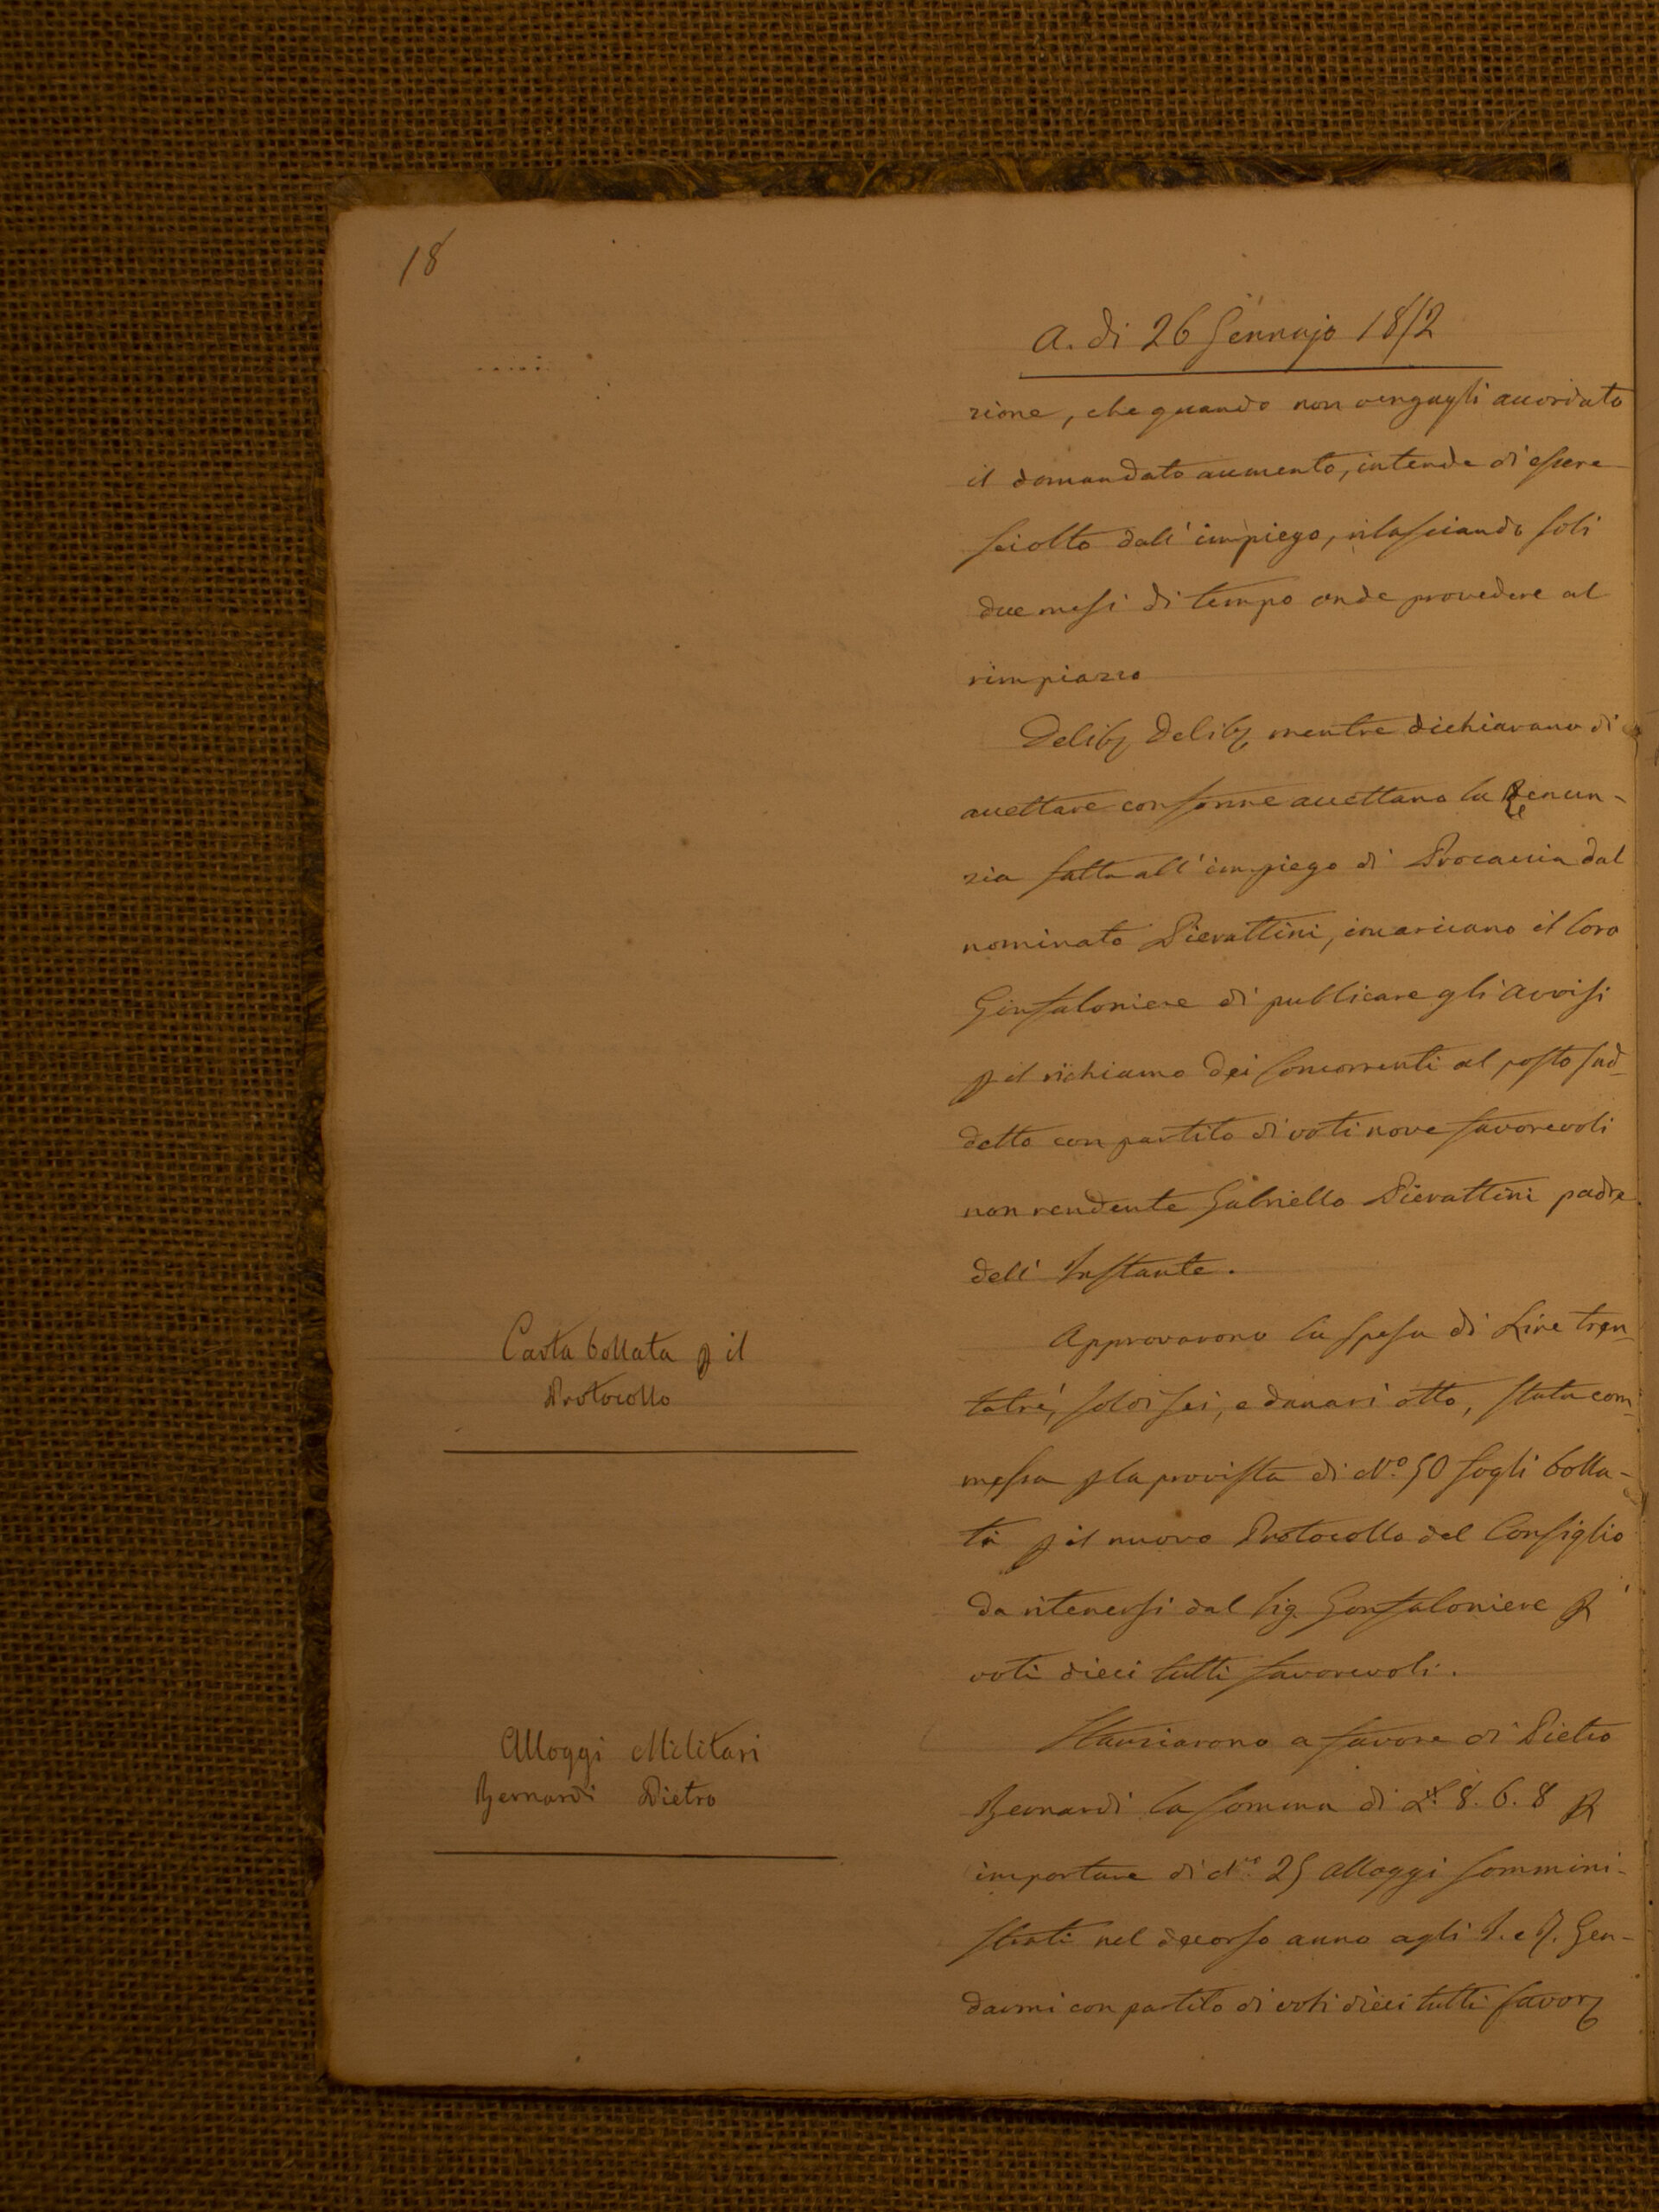 18
A. di 26 Gennajo 1852
zione, che quando non vengagli accordato
il domandato aumento, intende di essere
sciolto dall'impiego, rilasciando soli
due mesi di tempo onde provedere al
rimpiazzo
Delib. Delib. mentre dichiarano di
accettare conforme accettano la Renun-
zia fatta all'impiego di Procaccia dal
nominato Pierattini, incaricano il loro
Gonfaloniere di publicare gli avvisi
p il richiamo dei Concorrenti al posto sud-
detto con partito di voti nove favorevoli
non rendente Gabriello Pierattini padre
dell' Instante.
Carta bollata p il
Protocollo
Approvarono la spesa di Lire tren-
tatré, soldi sei, e danari otto, stata com-
messa p la provista di N.º 50 fogli bolla-
ti p il nuovo Protocollo del Consiglio
da ritenersi dal Sig. Gonfaloniere p
voti dieci tutti favorevoli.
Alloggi Militari
Bernardi Pietro
Stanziarono a favore di Pietro
Bernardi la somma di L. 8. 6. 8 p
importare di N.º 25 alloggi sommini-
strati nel decorso anno agli I. e R. Gen-
darmi con partito di voti dieci tutti favor